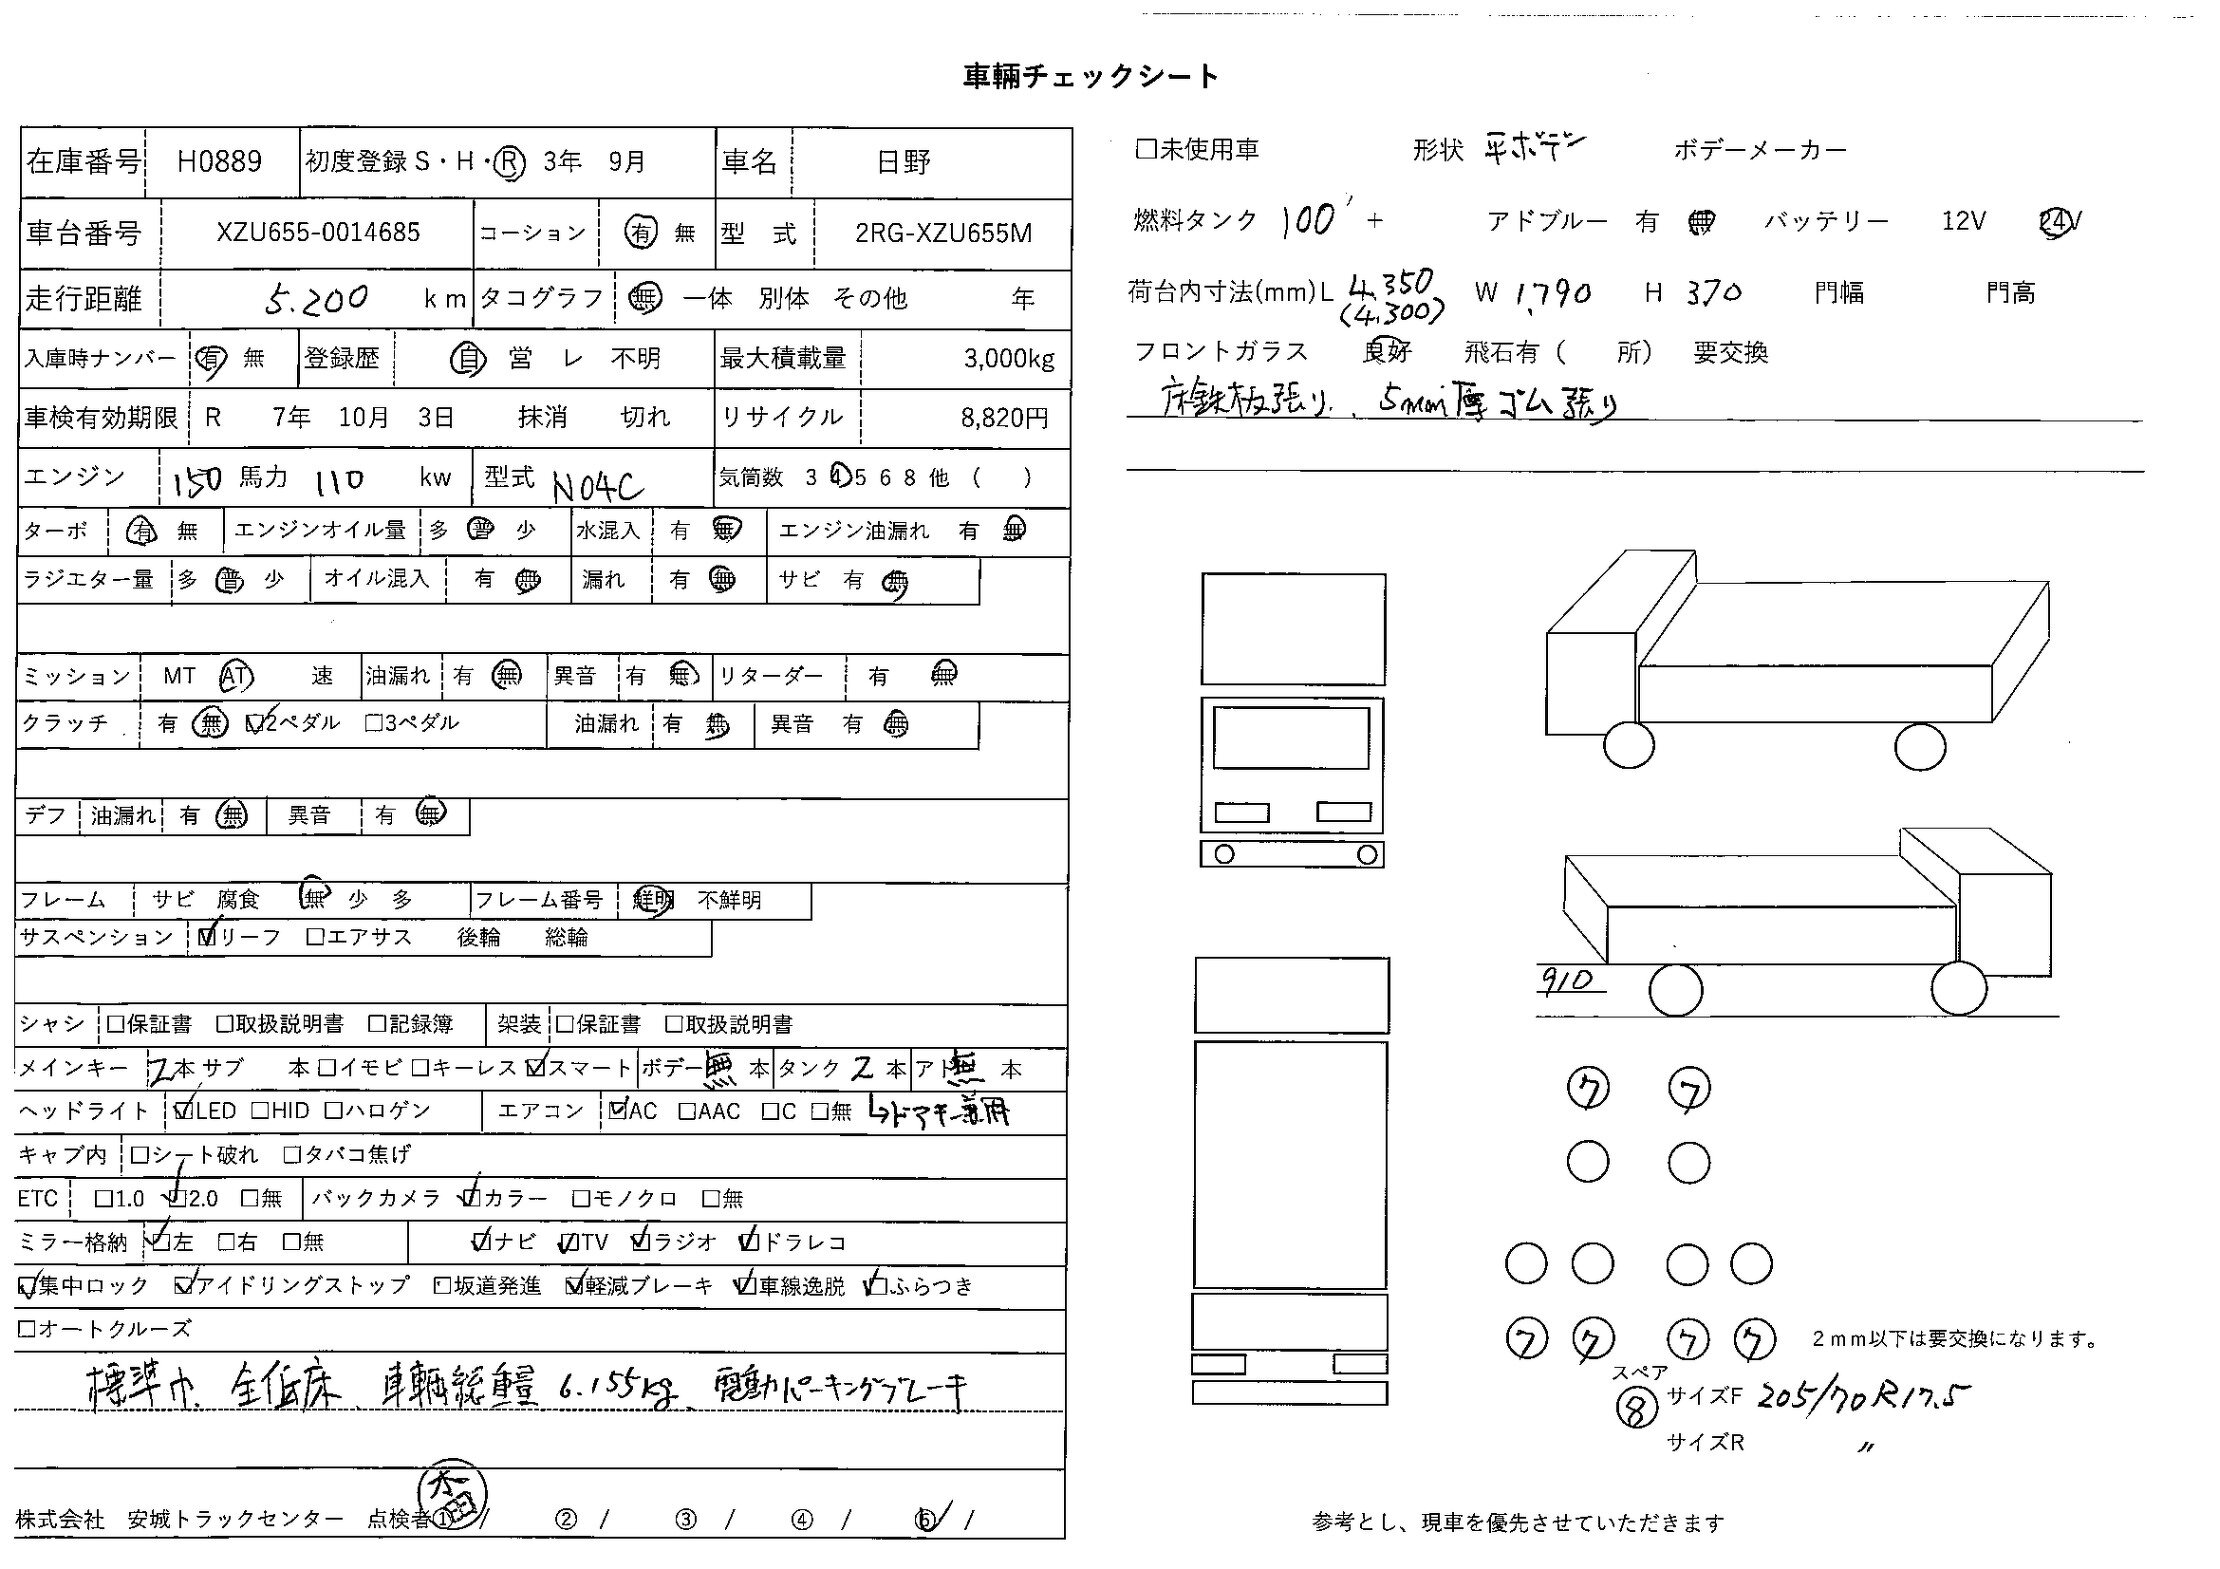 車輌チェックシート
在庫番号 H0889 初度登録 S・H・Ⓡ 3年 9月 車名 日野
車台番号 XZU655-0014685 コーション 有 無 型 式 2RG-XZU655M
走行距離 5.200 km タコグラフ 無 一体 別体 その他 年
入庫時ナンバー 有 無 登録歴 自 営 レ 不明 最大積載量 3,000kg
車検有効期限 R 7年 10月 3日 抹消 切れ リサイクル 8,820円
エンジン 150 馬力 110 kw 型式 N04C 気筒数 3 4 5 6 8 他 ( )
ターボ 有 無 エンジンオイル量 多 普 少 水混入 有 無 エンジン油漏れ 有 無
ラジエター量 多 普 少 オイル混入 有 無 漏れ 有 無 サビ 有 無
ミッション MT AT 速 油漏れ 有 無 異音 有 無 リターダー 有 無
クラッチ 有 無 ☑2ペダル □3ペダル 油漏れ 有 無 異音 有 無
デフ 油漏れ 有 無 異音 有 無
フレーム サビ 腐食 無 少 多 フレーム番号 鮮明 不鮮明
サスペンション ☑リーフ □エアサス 後輪 総輪
シャシ □保証書 □取扱説明書 □記録簿 架装 □保証書 □取扱説明書
メインキー 2本 サブ 本 □イモビ □キーレス ☑スマート ボデー 無 本 タンク 2 本 アド 無 本
ヘッドライト ☑LED □HID □ハロゲン エアコン ☑AC □AAC □C □無 ↳ドアキー兼用
キャブ内 □シート破れ □タバコ焦げ
ETC □1.0 ☑2.0 □無 バックカメラ ☑カラー □モノクロ □無
ミラー格納 ☑左 □右 □無 ☑ナビ ☑TV ☑ラジオ ☑ドラレコ
☑集中ロック ☑アイドリングストップ □坂道発進 ☑軽減ブレーキ ☑車線逸脱 ☑ふらつき
□オートクルーズ
標準巾、全低床、車輌総重量 6.155kg、電動パーキングブレーキ
株式会社 安城トラックセンター 点検者① / ② / ③ / ④ / ⑤ /
□未使用車 形状 平ボデー ボデーメーカー
燃料タンク 100 + アドブルー 有 無 バッテリー 12V 24V
荷台内寸法(mm) L 4.350 W 1.790 H 370 門幅 門高
(4.300)
フロントガラス 良好 飛石有 ( 所) 要交換
床鉄板張り、5mm厚ゴム張り
910
⑦ ⑦
⑦ ⑦ ⑦ ⑦ 2mm以下は要交換になります。
スペア
⑧ サイズF 205/70R17.5
サイズR 〃
参考とし、現車を優先させていただきます